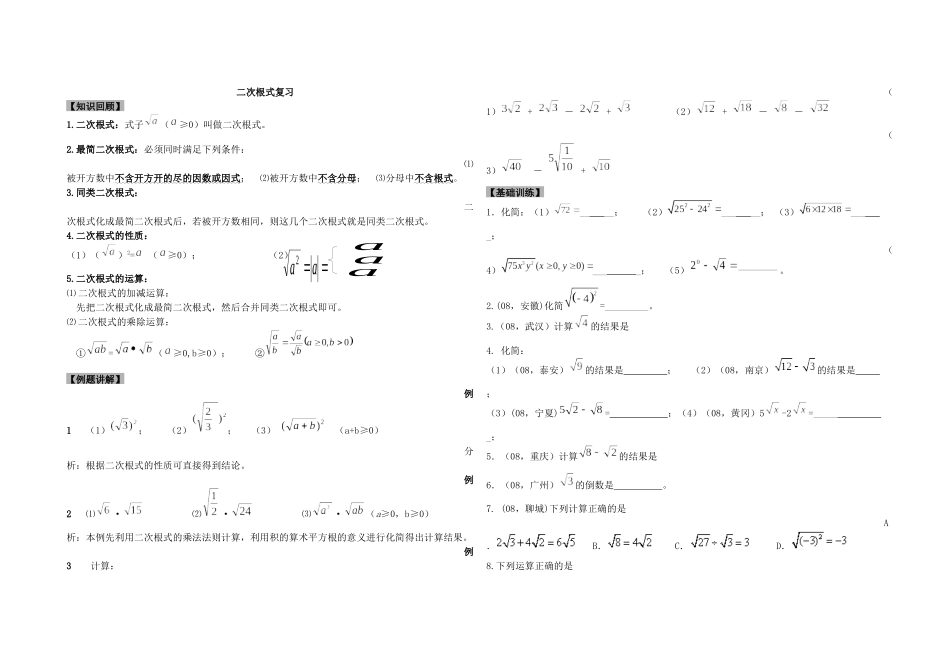 二次根式复习
【知识回顾】
1.二次根式：式子√a（a≥0）叫做二次根式。
2.最简二次根式：必须同时满足下列条件：
⑴
被开方数中不含开方开的尽的因数或因式； ⑵被开方数中不含分母； ⑶分母中不含根式。
3.同类二次根式：
二
次根式化成最简二次根式后，若被开方数相同，则这几个二次根式就是同类二次根式。
4.二次根式的性质：
（1）（√a）²=a （a≥0）； （2）√a²=|a|= { a a a
5.二次根式的运算：
⑴二次根式的加减运算：
先把二次根式化成最简二次根式，然后合并同类二次根式即可。
⑵二次根式的乘除运算：
①√ab=√a•√b（a≥0,b≥0）； ②√(a/b)=√a/√b(a≥0,b>0)
【例题讲解】
例
1 （1）(√3)²； （2）(√(2/3))²； （3）(√(a+b))² （a+b≥0）
分
析：根据二次根式的性质可直接得到结论。
例
2 ⑴√6•√15 ⑵√(1/2)•√24 ⑶√a³•√ab（a≥0，b≥0）
析：本例先利用二次根式的乘法法则计算，利用积的算术平方根的意义进行化简得出计算结果。
例
3 计算：
（
1）3√2 + 2√3 － 2√2 + √3 （2）√12 + √18 － √8 － √32
（
3）√40 － 5√(1/10) + √10
【基础训练】
1．化简：（1）√72=______； （2）√(25²-24²)=______； （3）√(6×12×18)=______
_；
（
4）√(75x³y²)(x≥0,y≥0)=________； （5）2⁰-√4=________。
2.(08，安徽)化简√(-4)²=_________。
3.（08，武汉）计算√4的结果是
4. 化简：
（1）（08，泰安）√9的结果是_________； （2）（08，南京）√12-√3的结果是_____
；
（3）(08，宁夏)5√2-√8=____________；（4）（08，黄冈）5√x-2√x=______________
_；
5．（08，重庆）计算√8-√2的结果是
6．（08，广州）√3的倒数是__________。
7. (08，聊城)下列计算正确的是
A
．2√3+4√2=6√5 B．√8=4√2 C．√27÷√3=3 D．√(-3)²=-3
8.下列运算正确的是